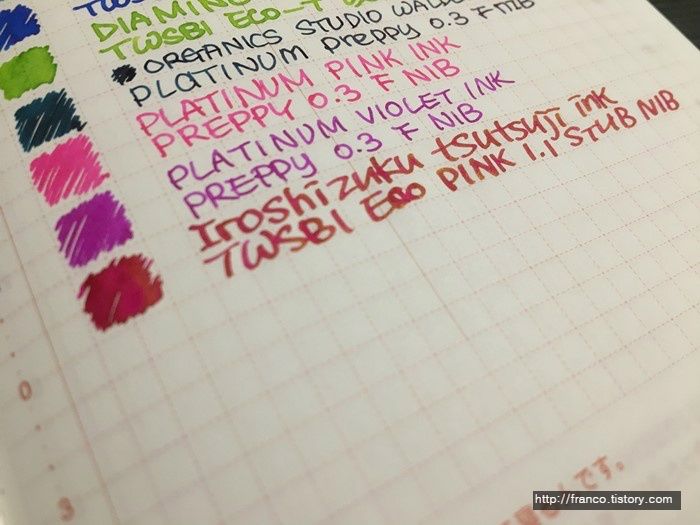 DIAMINE
TWSBI ECO-T
ORGANICS STUDIO WALDEN
PLATINUM Preppy 0.3 F NIB
PLATINUM PINK INK
PREPPY 0.3 F NIB
PLATINUM VIOLET INK
PREPPY 0.3 F NIB
Iroshizuku tsutsuji ink
TWSBI Eco PINK 1.1 STUB NIB
0
3
です。
http://franco.tistory.com